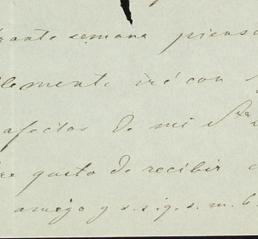 semana piens
lemente iré con
afectos de mi Sra
gusto de recibir
amigo y s. s. q. s. m. b.